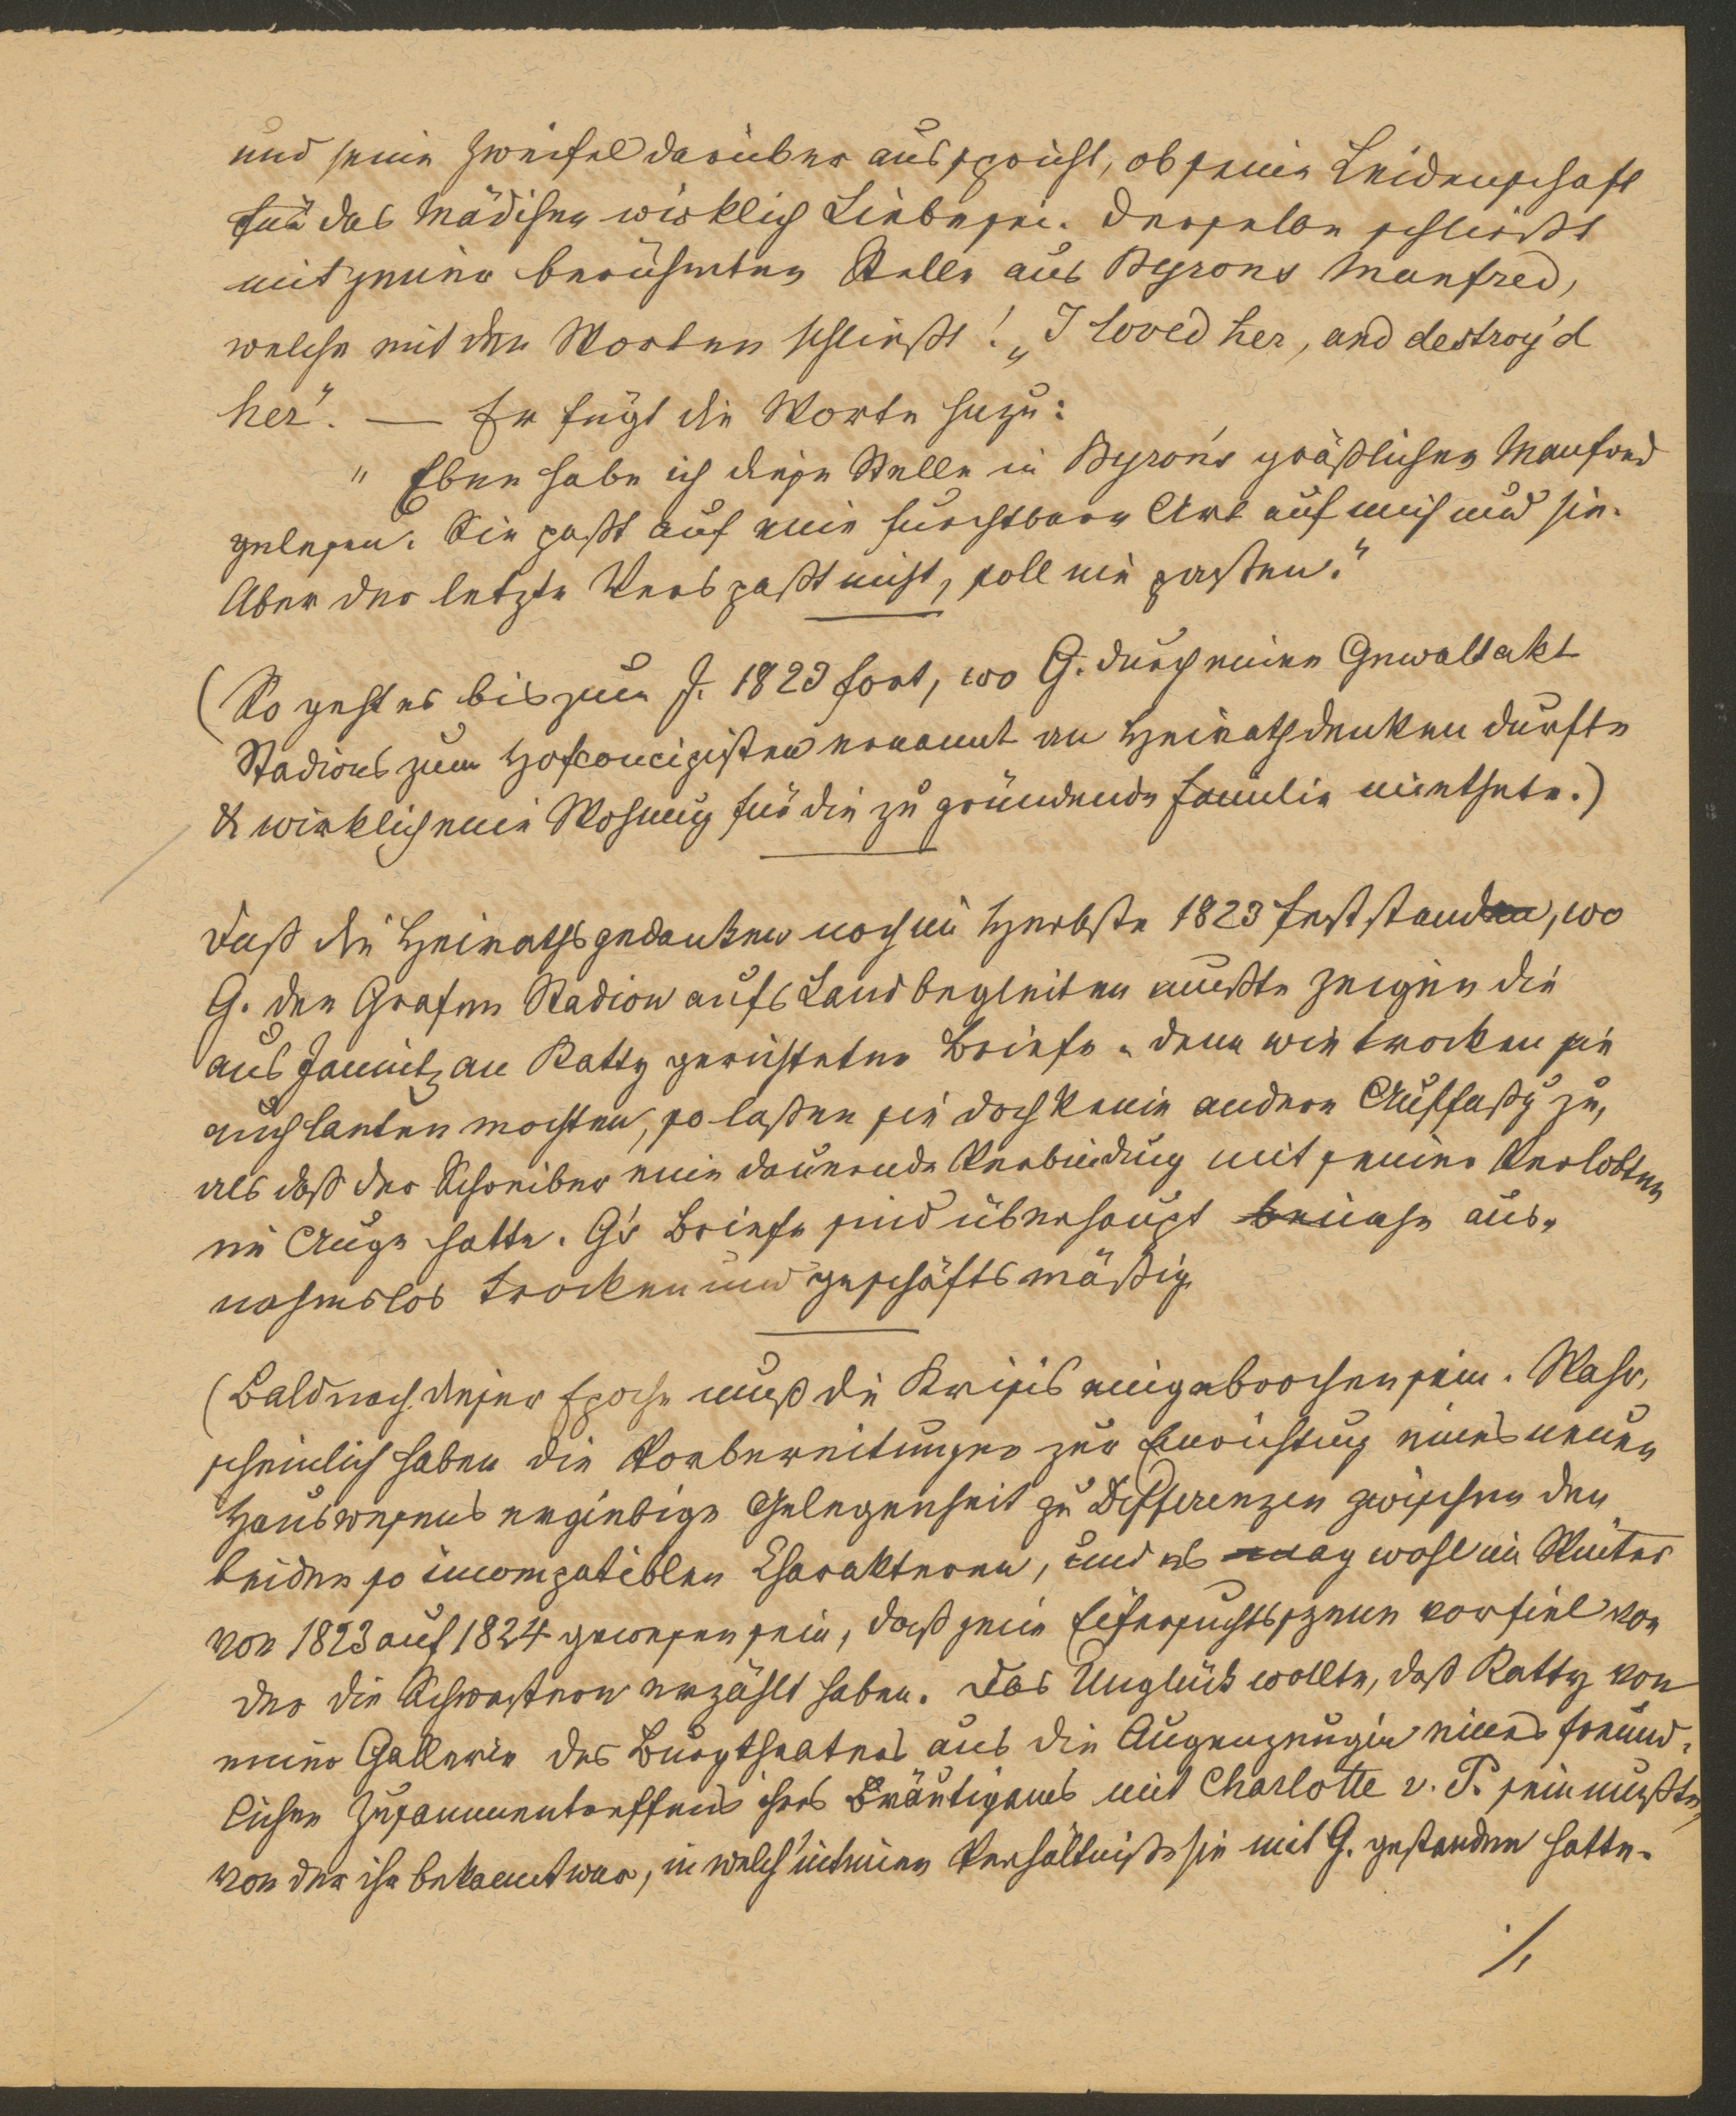 und seine Zweifel darüber ausspricht, ob seine Leidenschaft
für das Mädchen wirklich Liebe sei. Derselbe schließt
mit jener berühmten Stelle aus Byrons Manfred,
welche mit den Worten schließt: „I loved her, and destroy'd
her". — Er fügt die Worte hinzu:
" Eben habe ich diese Stelle in Byron's gräßlichen Manfred
gelesen. Sie paßt auf eine furchtbare Art auf mich und sie.
Aber der letzte Vers paßt nicht, soll nie passen."
(So geht es bis zum J. 1823 fort, wo G. durch einen Gewaltakt
Stadions zum Hofconcipisten ernannt an Heirath denken durfte
& wirklich eine Wohnung für die zu gründende Familie miethete.)
Daß die Heirathsgedanken noch im Herbste 1823 feststanden, wo
G. den Grafen Stadion aufs Land begleiten mußte zeigen die
aus Jamnitz an Katty gerichteten Briefe. denn wie trocken sie
auch lauten mochten, so laßen sie doch keine andere Auffaßg zu,
als daß der Schreiber eine dauernde Verbindung mit seiner Verlobten
im Auge hatte. G's Briefe sind überhaupt beinahe aus-
nahmslos trocken und geschäftsmäßig
(Bald nach dieser Epoche muß die Krisis eingebrochen sein. Wahr-
scheinlich haben die Vorbereitungen zur Einrichtung eines neuen
Hauswesens ergiebige Gelegenheit zu Differenzen zwischen den
beiden so incompatiblen Charakteren, und es mag wohl im Winter
von 1823 auf 1824 gewesen sein, daß jene Eifersuchtsszene vorfiel von
der die Schwestern erzählt haben. Das Unglück wollte, daß Katty von
einer Gallerie des Burgtheaters aus die Augenzeugin eines freund-
lichen Zusammentreffens ihres Bräutigams mit Charlotte v. P. sein mußte,
von der ihr bekannt war, in welch' intimen Verhältniße sie mit G. gestanden hatte.
./.